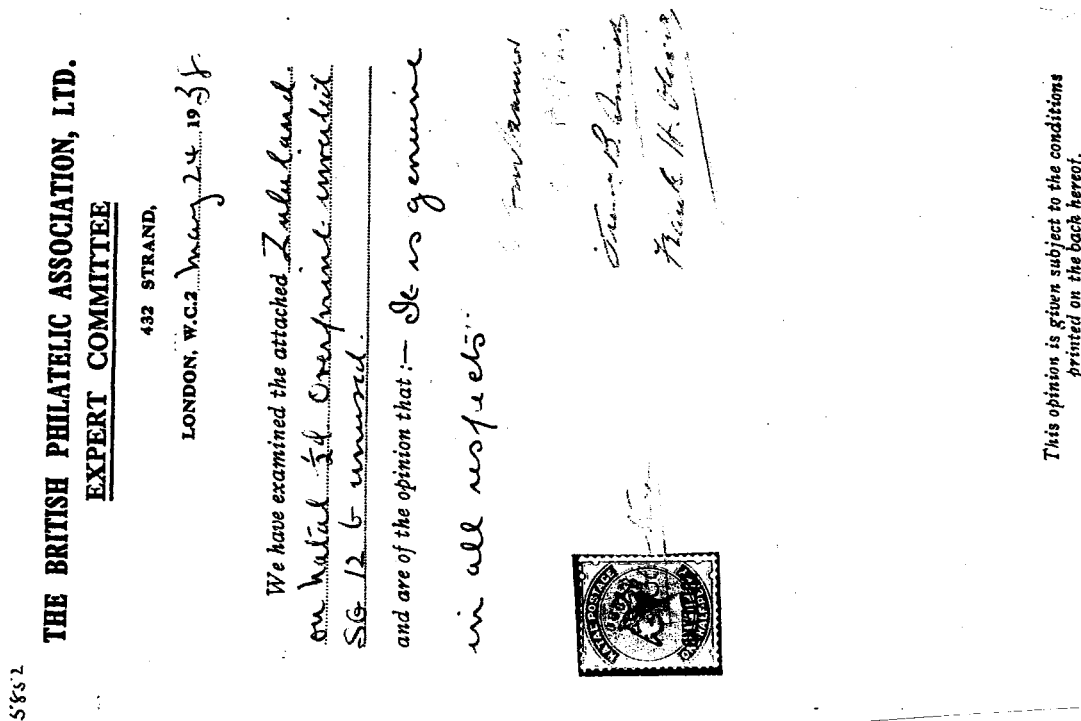 5852
THE BRITISH PHILATELIC ASSOCIATION, LTD.
EXPERT COMMITTEE
432 STRAND,
LONDON, W.C.2 May 24 1938.
We have examined the attached Zululand
on Natal ½d Overprint inverted
SG 12 b unused.
and are of the opinion that :— It is genuine
in all respects.
NATAL POSTAGE
ZULULAND
This opinion is given subject to the conditions
printed on the back hereof.